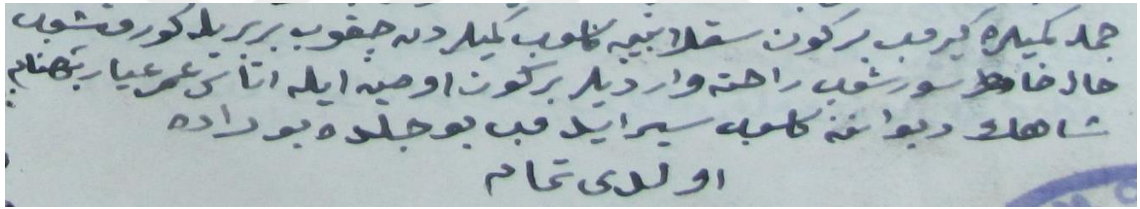 جمله كميلره كيروب بركون سقلابيه كلوب كميلردن چيقوب بربريله كورشوب
حال خاطر سورشوب راحته وارديلر بركون اوچين ايله اتاسى عمر عيار
شاهك ديواننه كلوب سير ايدوب بو جلدده بوراده
اولدى تمام